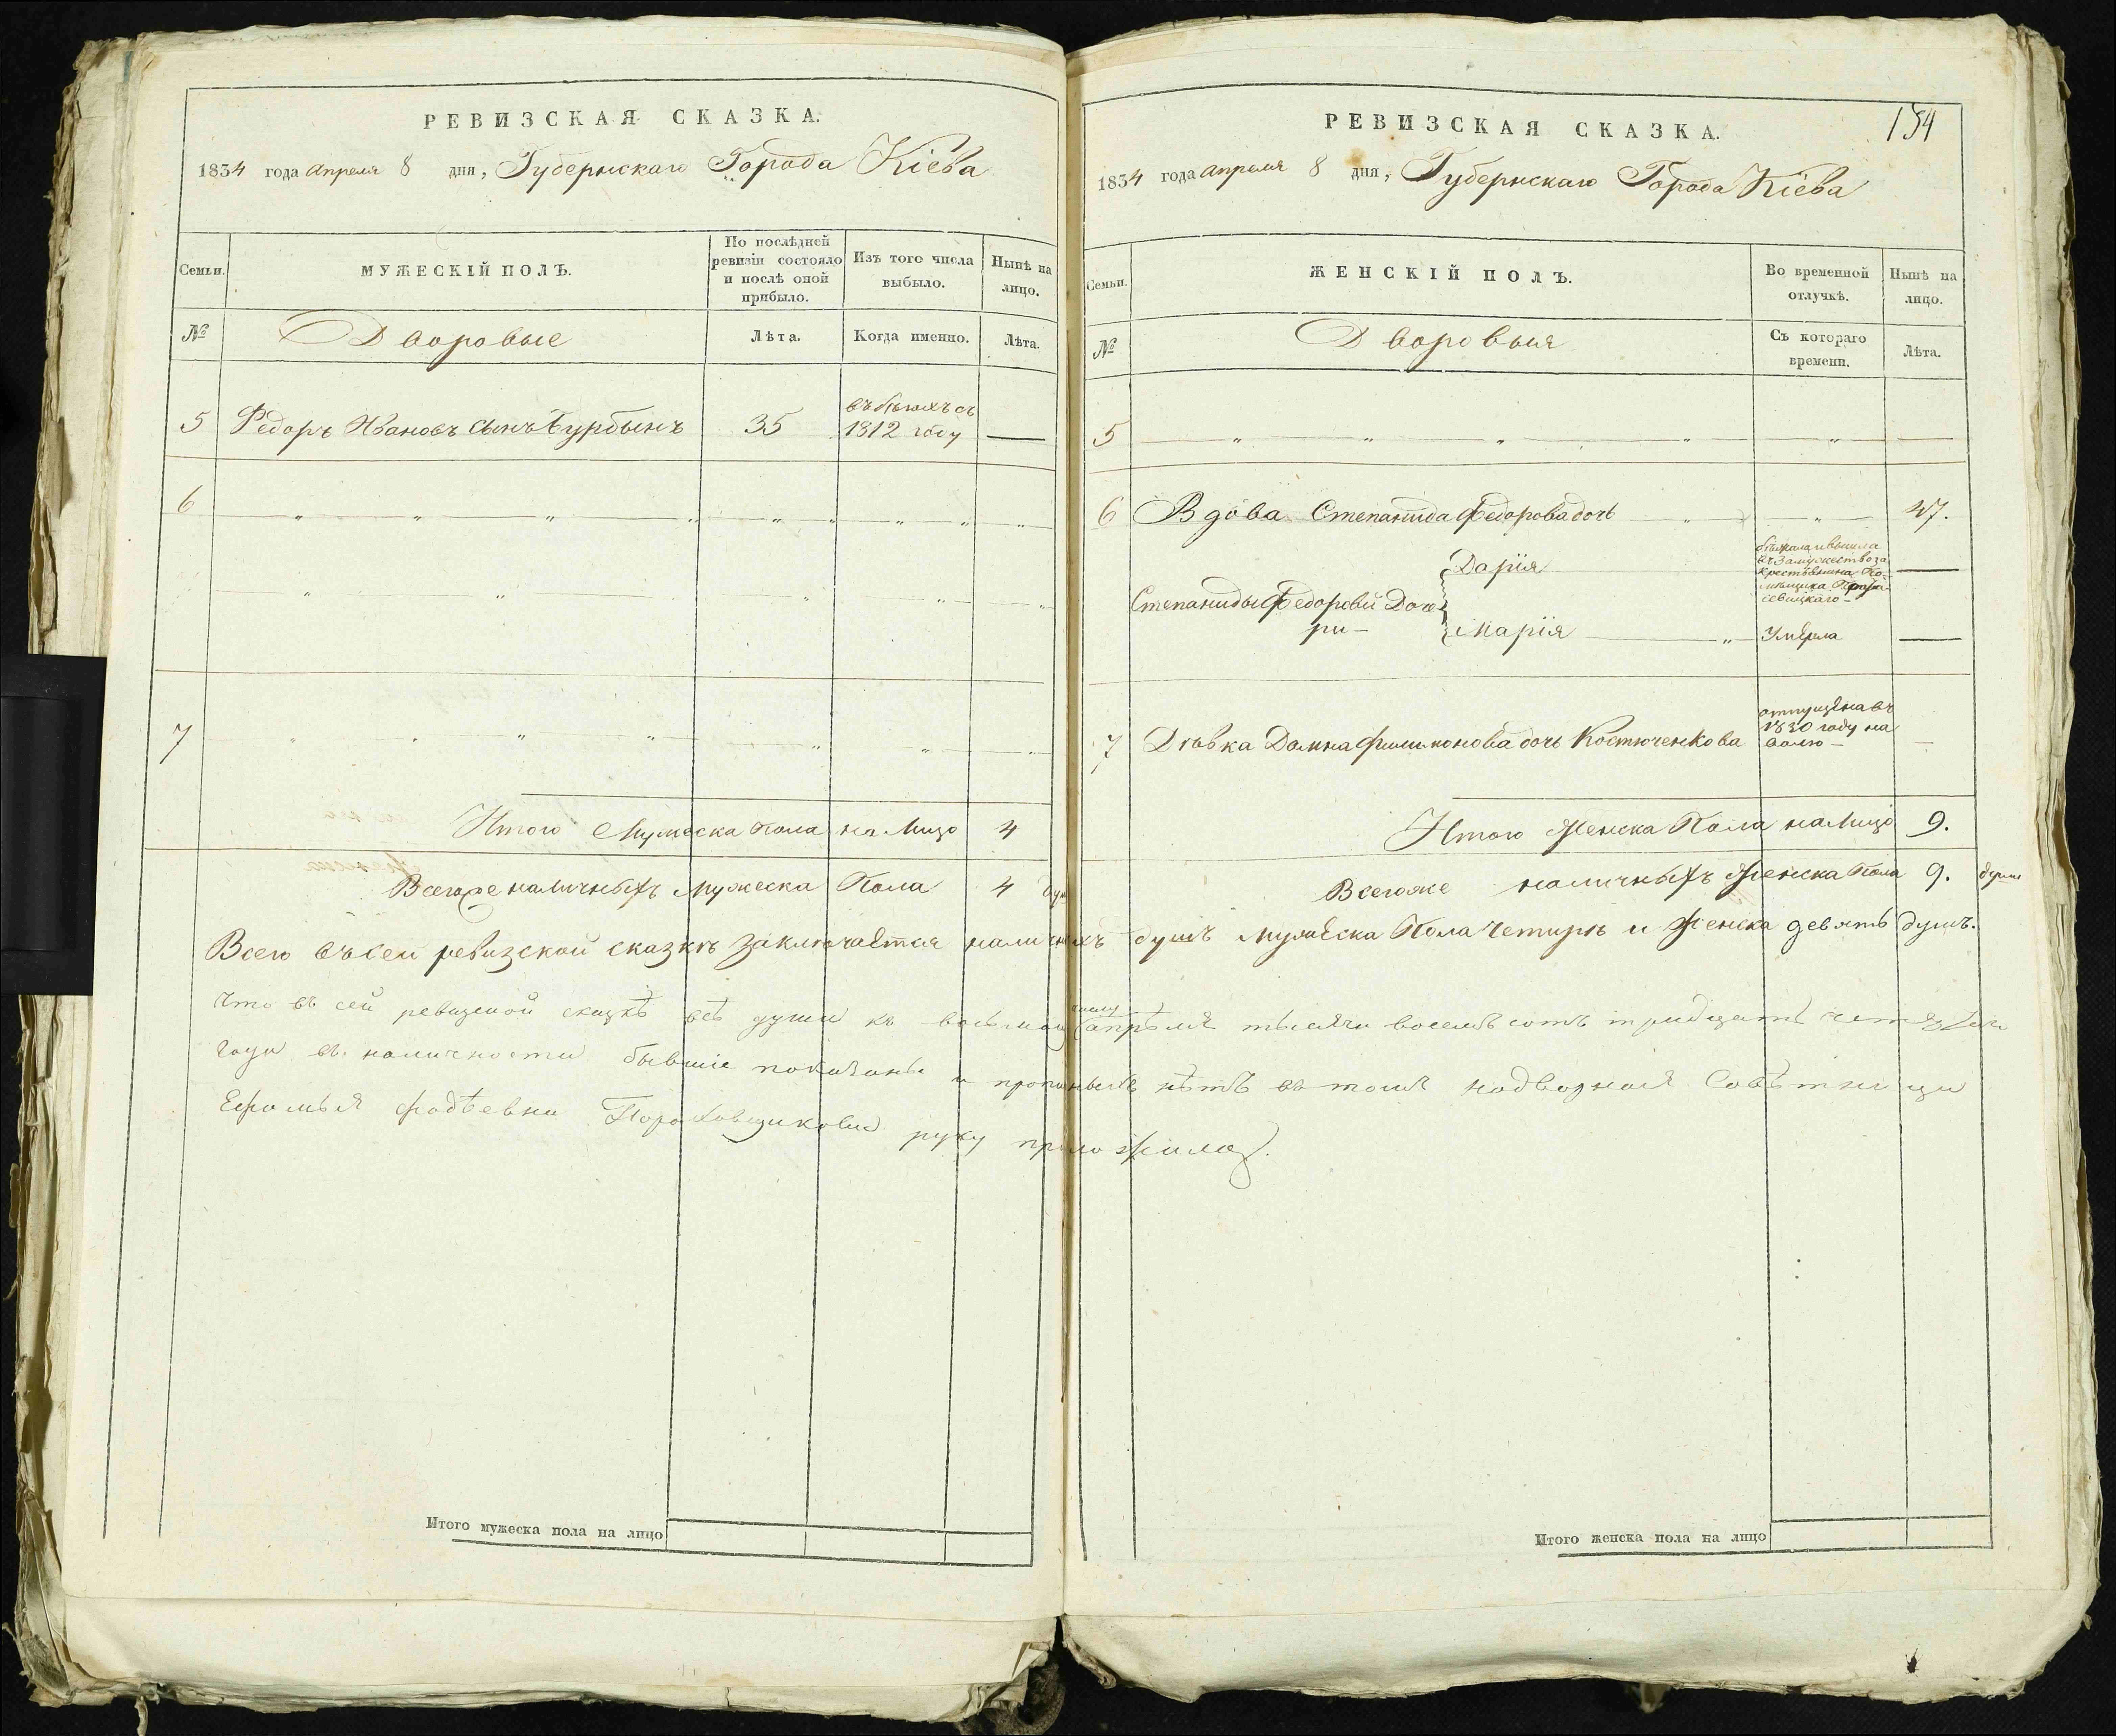 РЕВИЗСКАЯ СКАЗКА.
1834 года апреля 8 дня, Губернскаго Города Кіева
Семьи.
МУЖЕСКІЙ ПОЛЪ.
По послѣдней
ревизіи состояло
и послѣ оной
прибыло.
Изъ того числа
выбыло.
Нынѣ на
лицо.
№
Дворовые
Лѣта.
Когда именно.
Лѣта.
5 Федоръ Ивановъ сынъ Бурбынъ 35
въ бѣгахъ съ
1812 году
6
7
Итого Мужеска пола на Лицо 4
Всегоже наличныхъ Мужеска Пола 4 душ
РЕВИЗСКАЯ СКАЗКА.
134
1834 года апреля 8 дня, Губернскаго Города Кіева
Семьи.
ЖЕНСКІЙ ПОЛЪ.
Во временной
отлучкѣ.
Нынѣ на
лицо.
№
Дворовыя
Съ котораго
времени.
Лѣта.
5
6 Вдова Степанида Федорова дочь 47.
Степаниды Федоровой Доче
ри
Дарія
бѣжала и вышла
въ Замужество за
крестьянина По-
мѣщика
Марія Умерла
7 Дѣвка Домна Филимонова дочь Костюченкова
отпущена въ
1830 году на
волю
Итого Женска Пола на Лицо 9.
Всегоже наличныхъ Женска Пола 9. душъ
Всего въ сей ревизской сказкѣ заключается наличныхъ душъ мужеска Пола Четыре и Женска девять душъ.
Что въ сей ревизской сказкѣ всѣ души къ восьмому числу апрѣля тысяча восемь сотъ тридцать
года въ наличности бывшіе показаны и прописныхъ нѣтъ въ томъ надворная Совѣтница
Фадѣевна Пороховщикова руку приложила.
Итого мужеска пола на лицо
Итого женска пола на лицо